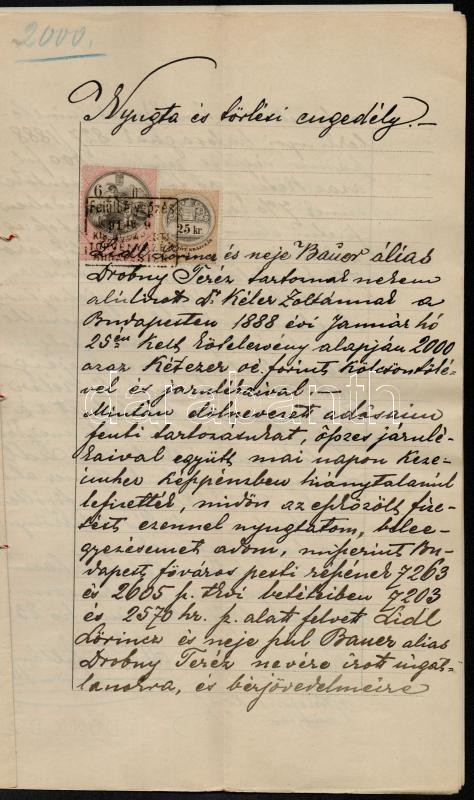 2000.
Nyugta és törlési engedély.–
25 kr.
Lőrincz és neje Bauer álias
Drobny Teréz tartoznak nekem
alulirott Dr Kéler Zoltánnak a
Budapesten 1888 évi Január hó
25én kelt kötelezvény alapján 2000
azaz Kétezer oé. forint kölcsöntőké-
vel és járulékaival.–
Miután elölnevezett adósaim
fenti tartozásukat, öszes járulé-
kaival együtt mai napon keze-
imhez képpénzben hiánytalanul
lefizették, midőn az eszközölt fize-
tést ezennel nyugtatom, bele-
egyezésemet adom, miszerint Bu-
dapest főváros pesti részének 7263
és 2005 p. tkvi betéteiben 7203
és 2570 hr. p. alatt felvett Lidl
Lőrincz és neje szül Bauer alias
Drobny Teréz nevére irott ingat-
lanokra, és bérjövedelmeire
darabanth